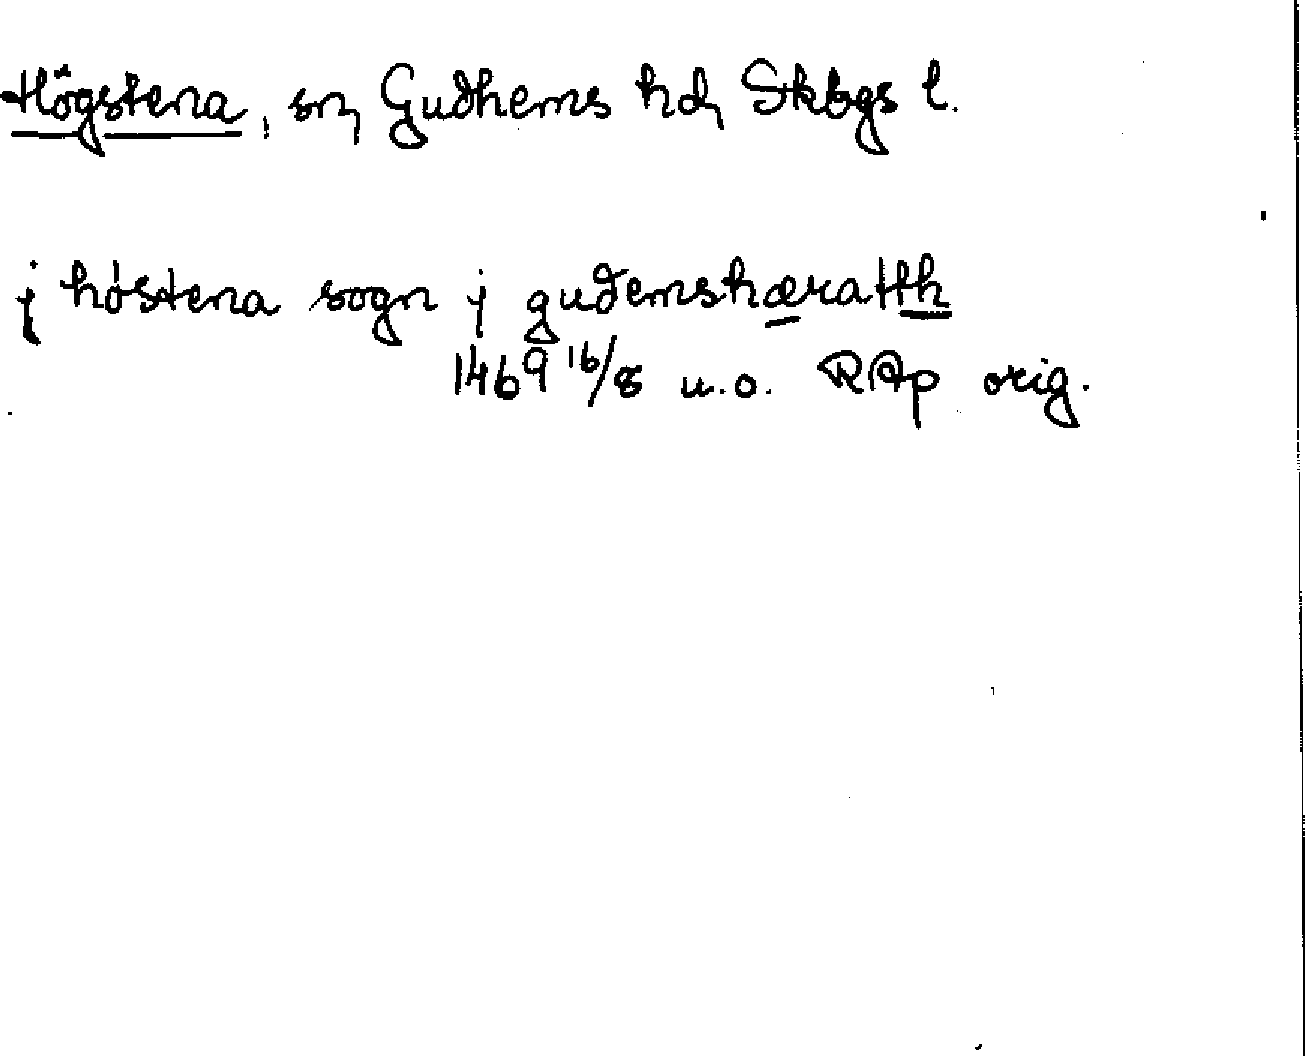 Högstena, sn, Gudhems hd, Skbgs l.
j höstena sogn j gudemshæratth
1469 16/8 u.o. RAp orig.